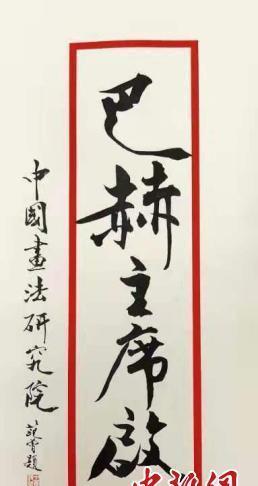 巴赫主席啟
中國畫法研究院
范曾題
中新网